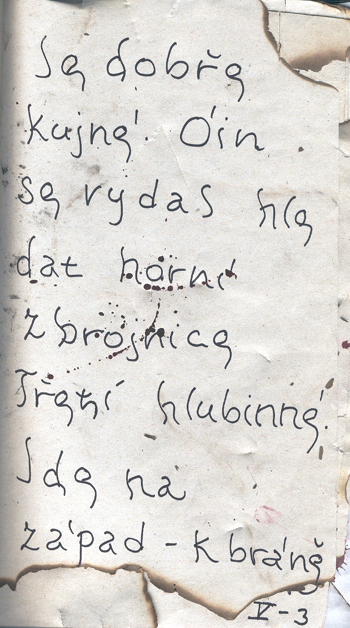 Je dobře
kujné. Óin
se vydas hle
dat horní
zbrojnice
Třetí hlubinné.
Jde na
západ - k bráně
V-3